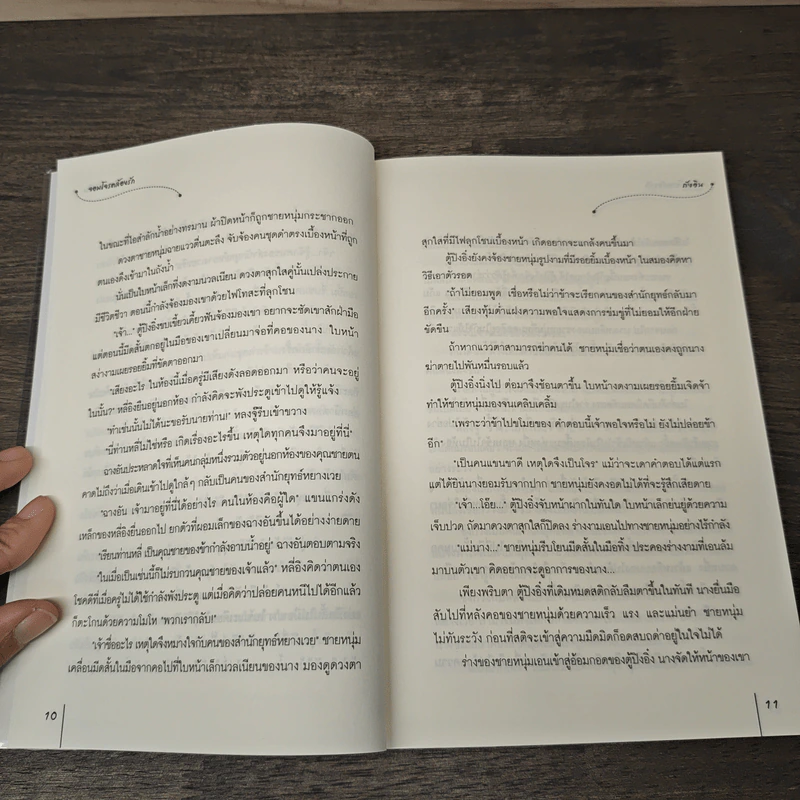 จอมโจรคล้องรัก
ในขณะที่ไอสำลักน้ำอย่างทรมาน ผ้าปิดหน้าก็ถูกชายหนุ่มกระชากออก
ดวงตาชายหนุ่มฉายแววตื่นตะลึง จับจ้องคนชุดดำตรงเบื้องหน้าที่ถูก
ตนเองดึงเข้ามาในถังน้ำ
นั่นเป็นใบหน้าเล็กที่งดงามนวลเนียน ดวงตาสุกใสคู่นั้นเปล่งประกาย
มีชีวิตชีวา ตอนนี้กำลังจ้องมองเขาด้วยไฟโทสะที่ลุกโชน
"เจ้า..." ตู้ปิงอิ่งขบเขี้ยวเคี้ยวฟันจ้องมองเขา อยากจะซัดเขาสักฝ่ามือ
แต่ตอนนี้มีดสั้นตกอยู่ในมือของเขาเปลี่ยนมาจ่อที่คอของนาง ใบหน้า
สง่างามเผยรอยยิ้มที่ขัดตาออกมา
"เสียงอะไร ในห้องนี้เมื่อครู่มีเสียงดังลอดออกมา หรือว่าคนจะอยู่
ในนั้น?" หลี่อิงยืนอยู่นอกห้อง กำลังคิดจะพังประตูเข้าไปดูให้รู้แจ้ง
"ทำเช่นนั้นไม่ได้นะขอรับนายท่าน!" หลงจู๊รีบเข้าขวาง
"นี่ท่านหลี่ไม่ใช่หรือ เกิดเรื่องอะไรขึ้น เหตุใดทุกคนจึงมาอยู่ที่นี่"
ฉางอันประหลาดใจที่เห็นคนกลุ่มหนึ่งรวมตัวอยู่นอกห้องของคุณชายตน
คาดไม่ถึงว่าเมื่อเดินเข้าไปดูใกล้ๆ กลับเป็นคนของสำนักยุทธ์หยางเวย
"ฉางอัน เจ้ามาอยู่ที่นี่ได้อย่างไร คนในห้องคือผู้ใด" แขนแกร่งดัง
เหล็กของหลี่อิงยื่นออกไป ยกตัวที่ผอมเล็กของฉางอันขึ้นได้อย่างง่ายดาย
"เรียนท่านหลี่ เป็นคุณชายของข้ากำลังอาบน้ำอยู่" ฉางอันตอบตามจริง
"ในเมื่อเป็นเช่นนี้ก็ไม่รบกวนคุณชายของเจ้าแล้ว" หลี่อิงคิดว่าตนเอง
โชคดีที่เมื่อครู่ไม่ได้ใช้กำลังพังประตู แต่เมื่อคิดว่าปล่อยคนหนีไปได้อีกแล้ว
ก็ตะโกนด้วยความโมโห "พวกเรากลับ!"
"เจ้าชื่ออะไร เหตุใดจึงหมางใจกับคนของสำนักยุทธ์หยางเวย" ชายหนุ่ม
เคลื่อนมีดสั้นในมือจากคอไปที่ใบหน้าเล็กนวลเนียนของนาง มองดูดวงตา
10
สุกใสที่มีไฟลุกโชนเบื้องหน้า เกิดอยากจะแกล้งคนขึ้นมา
ตู้ปิงอิ่งยังคงจ้องชายหนุ่มรูปงามที่มีรอยยิ้มเบื้องหน้า ในสมองคิดหา
วิธีเอาตัวรอด
"ถ้าไม่ยอมพูด เชื่อหรือไม่ว่าข้าจะเรียกคนของสำนักยุทธ์กลับมา
อีกครั้ง" เสียงทุ้มต่ำแฝงความพอใจแสดงการข่มขู่ที่ไม่ยอมให้อีกฝ่าย
ขัดขืน
ถ้าหากแววตาสามารถฆ่าคนได้ ชายหนุ่มเชื่อว่าตนเองคงถูกนาง
ฆ่าตายไปพันหมื่นรอบแล้ว
ตู้ปิงอิ่งนิ่งไป ต่อมาจึงช้อนตาขึ้น ใบหน้างดงามเผยรอยยิ้มเจิดจ้า
ทำให้ชายหนุ่มมองจนเคลิบเคลิ้ม
"เพราะว่าข้าไปขโมยของ คำตอบนี้เจ้าพอใจหรือไม่ ยังไม่ปล่อยข้า
อีก"
"เป็นคนแขนขาดี เหตุใดจึงเป็นโจร" แม้ว่าจะเดาคำตอบได้แต่แรก
แต่ได้ยินนางยอมรับจากปาก ชายหนุ่มยังคงอดไม่ได้ที่จะรู้สึกเสียดาย
"เจ้า...โอ๊ย..." ตู้ปิงอิ่งจับหน้าผากในทันใด ใบหน้าเล็กย่นยู่ด้วยความ
เจ็บปวด ถัดมาดวงตาสุกใสก็ปิดลง ร่างงามเอนไปทางชายหนุ่มอย่างไร้กำลัง
"แม่นาง..." ชายหนุ่มรีบโยนมีดสั้นในมือทิ้ง ประคองร่างงามที่เอนล้ม
มาบนตัวเขา คิดอยากจะดูอาการของนาง...
เพียงพริบตา ตู้ปิงอิ่งที่เดิมหมดสติกลับลืมตาขึ้นในทันที นางยื่นมือ
สับไปที่หลังคอของชายหนุ่มด้วยความเร็ว แรง และแม่นยำ ชายหนุ่ม
ไม่ทันระวัง ก่อนที่สติจะเข้าสู่ความมืดมิดก็อดสบถด่าอยู่ในใจไม่ได้
ร่างของชายหนุ่มเอนเข้าสู่อ้อมกอดของตู้ปิงอิ่ง นางจัดให้หน้าของเขา
11